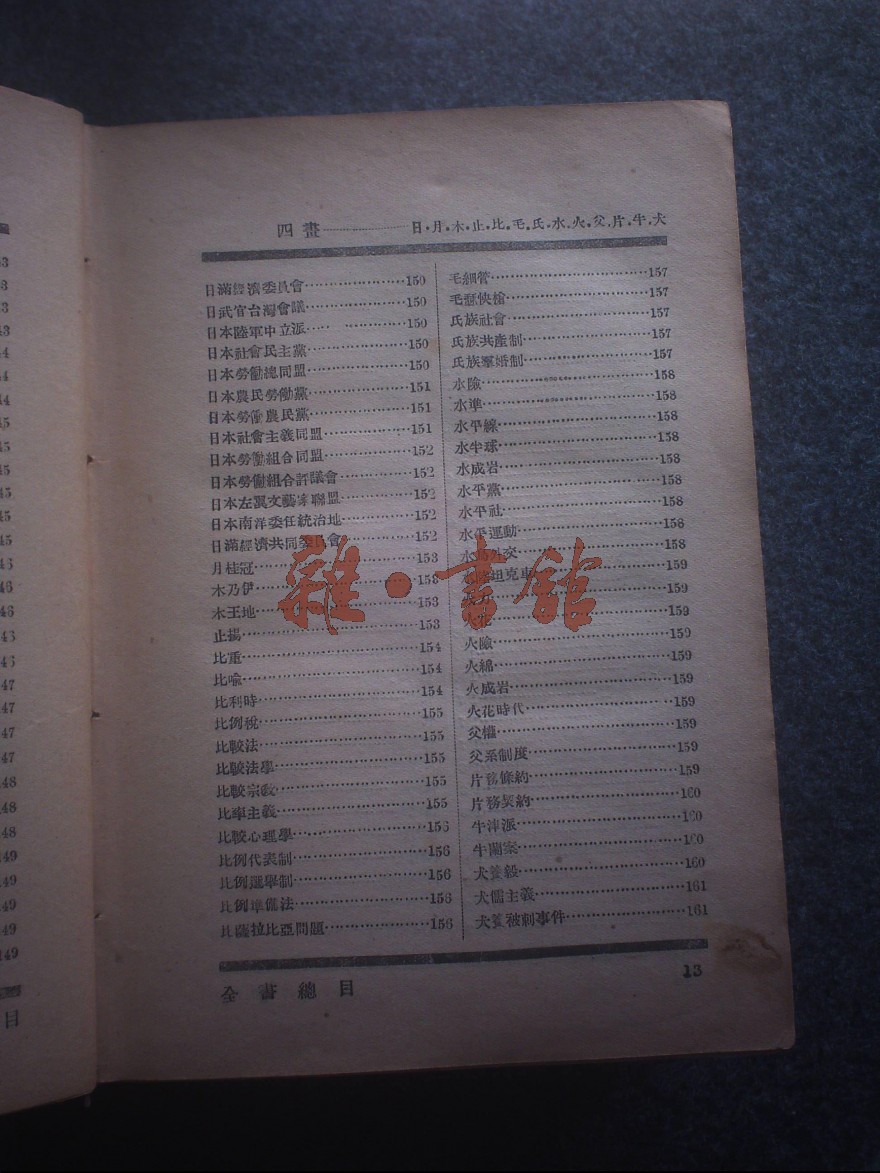 四畫————日.月.木.止.比.毛.氏.水.火.父.片.牛.犬
日滿經濟委員會………150
日武官台灣會議………150
日本陸軍中立派………150
日本社會民主黨………150
日本勞働總同盟………150
日本農民勞働黨………151
日本勞働農民黨………151
日本社會主義同盟………151
日本勞働組合同盟………152
日本勞働組合評議會………152
日本左翼文藝家聯盟………152
日本南洋委任統治地………152
日滿經濟共同委員會………152
月桂冠………153
木乃伊………153
木王地………153
止揚………153
比重………154
比喻………154
比利時………154
比例稅………155
比較法………155
比較法學………155
比較宗教………155
比率主義………155
比較心理學………156
比例代表制………156
比例選舉制………156
比例準備法………156
比薩拉比亞問題………156
毛細管………157
毛瑟快槍………157
氏族社會………157
氏族共產制………157
氏族羣婚制………157
水險………158
水準………158
水平線………158
水半球………158
水成岩………158
水平黨………158
水平社………158
水平運動………158
水鳥外交………158
坦克車………159
159
火險………159
火綿………159
火成岩………159
火花時代………159
父權………159
父系制度………159
片務條約………159
片務契約………160
牛津派………160
牛蘭案………160
犬養毅………160
犬儒主義………161
犬養被刺事件………161
全書總目
13
雜·書館
53
43
44
44
45
45
45
45
45
46
46
46
47
47
47
48
48
48
149
49
49
49
149
目